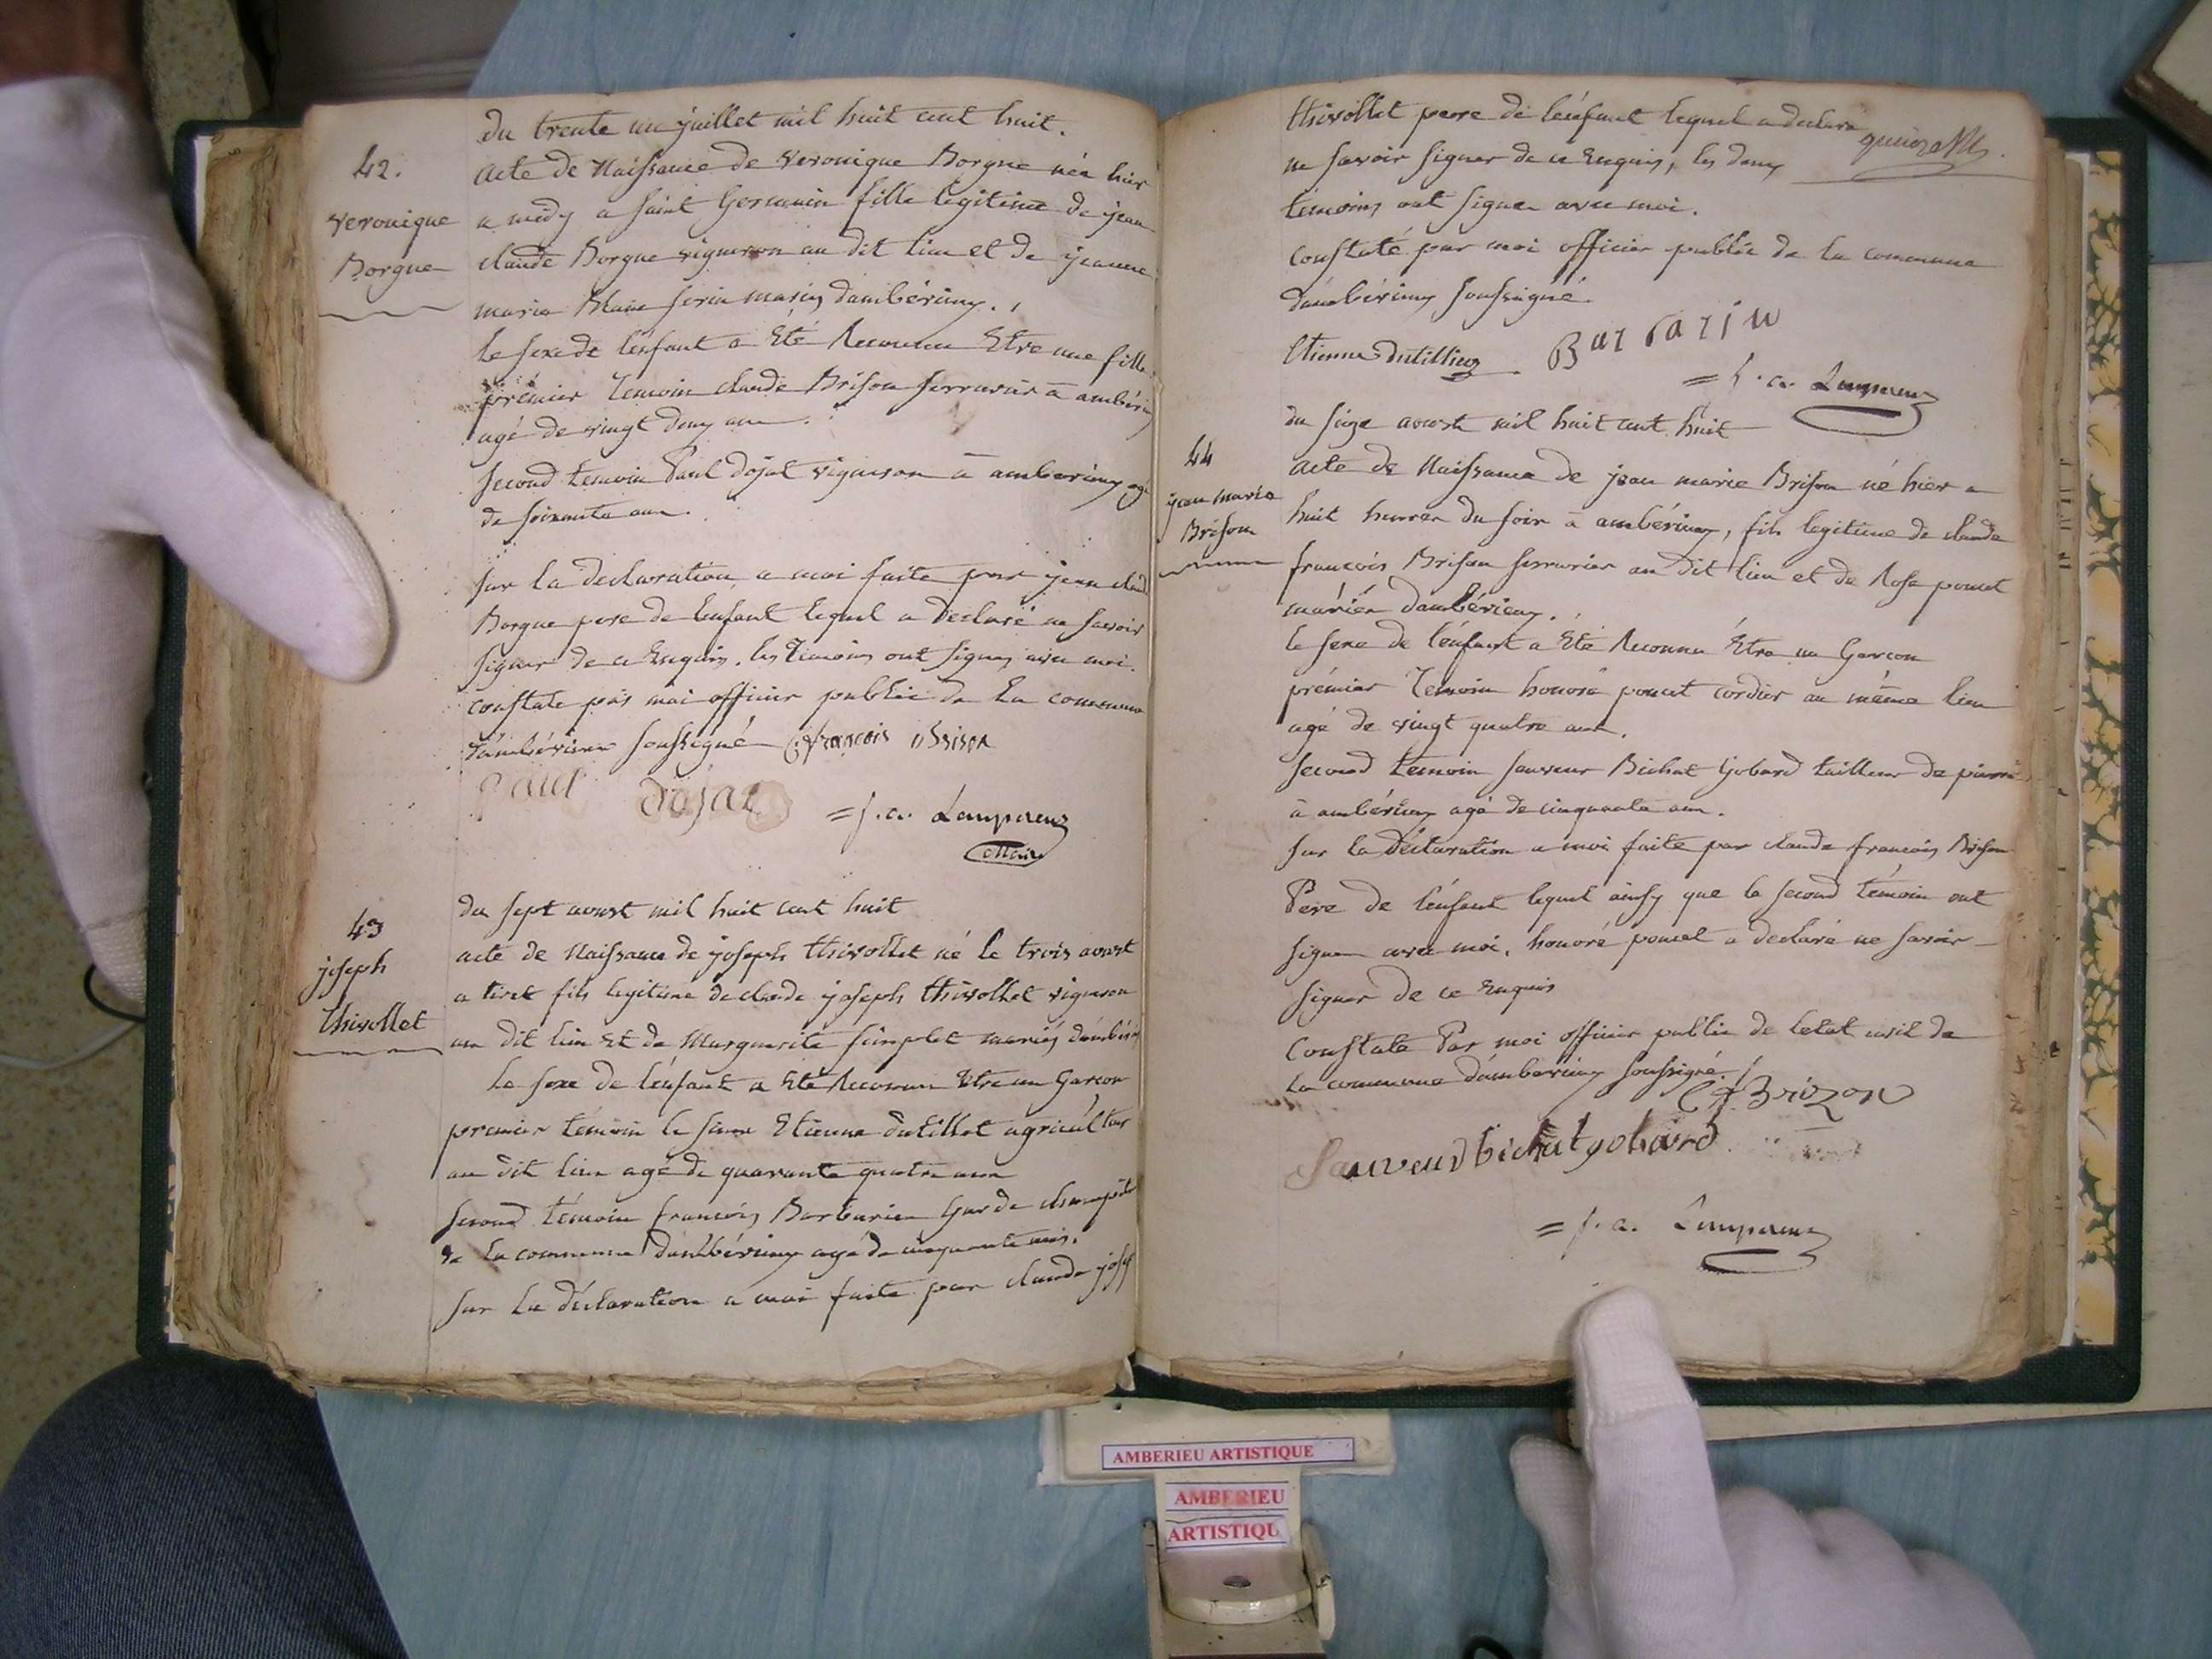 du trente un juillet mil huit cent huit.
42.
veronique
Borgne
acte de Naissance de veronique Borgne née hier
a midy a saint Germain fille legitime de jean
claude Borgne vigneron au dit lieu et de jeanne
marie mariés d'ambérieux.
le sexe de l'enfant a Eté Reconnu Etre une fille.
premier temoin claude Brison serrurier à ambérieux
agé de vingt deux ans.
second temoin Paul dojat vigneron à amberieux agé
de soixante ans.
sur la declaration a moi faite par jean claude
Borgne pere de lenfant lequel a declaré ne savoir
signer de ce Enquis. les temoins ont signés avec moi.
constate par moi officier public de la commune
d'ambérieux soussigné C françois Brison
Paul dojat = f. a.
Maire
43
joseph
thivollet
du sept aoust mil huit cent huit
acte de Naissance de joseph thivollet né le trois aoust
a tiret fils legitime de claude joseph thivollet vigneron
au dit lieu et de Marguerite mariés d'ambérieux
Le sexe de l'enfant a Eté Reconnu Etre un Garcon
premier temoin le sieur Etienne dutillet agriculteur
au dit lieu agé de quarante quatre ans
second témoin francois Barbarin Garde champêtre
de la commune d'ambérieux agé de cinquante
sur la déclaration a moi faite par claude joseph
thivollet pere de l'enfant lequel a declaré
ne savoir signer de ce Enquis, les deux
témoins ont signer avec moi.
constaté par moi officier public de la commune
d'ambérieux soussigné.
Etienne Barbarin
= f. a.
44
jean marie
Brison
du seize aoust mil huit cent huit
acte de Naissance de jean marie Brison né hier a
huit heures du soir à ambérieux, fils legitime de claude
francois Brison serrurier au dit lieu et de Rose poncet
mariés d'ambérieux.
le sexe de l'enfant a Eté Reconnu Etre un Garcon
prémier Temoin honoré poncet cordier au même lieu
agé de vingt quatre ans.
second temoin sauveur Bichat Gobard tailleur de pierre
à ambérieux agé de cinquante ans.
sur la déclaration a moi faite par claude francois Brison
Pere de l'enfant lequel ainsy que le second témoin ont
signer avec moi, honoré poncet a declaré ne savoir
signer de ce Enquis
Constate Par moi officier public de letat civil de
la commune d'amberieux soussigné.
C f Brizon
Sauveur bichat gobard
= f. a.
AMBERIEU ARTISTIQUE
AMBERIEU
ARTISTIQU